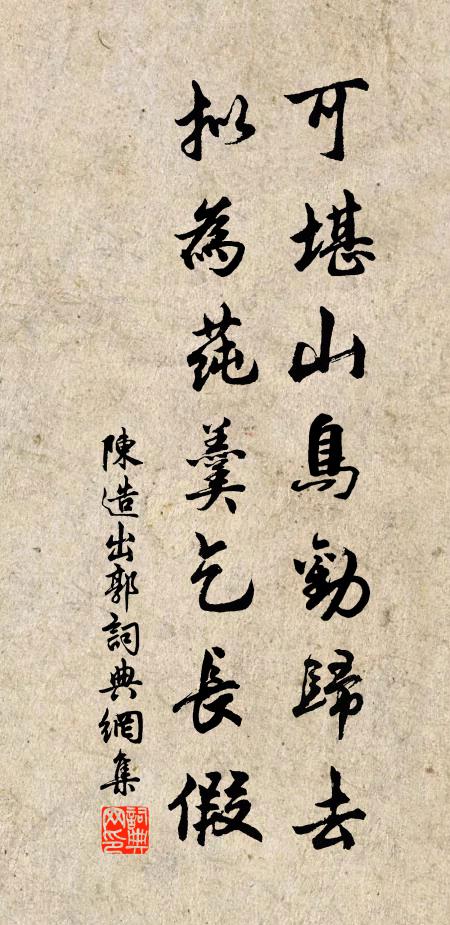 可堪山鳥勸歸去
拟為蒓羹乞長假
陳造出郭詞典網集
詞典網印